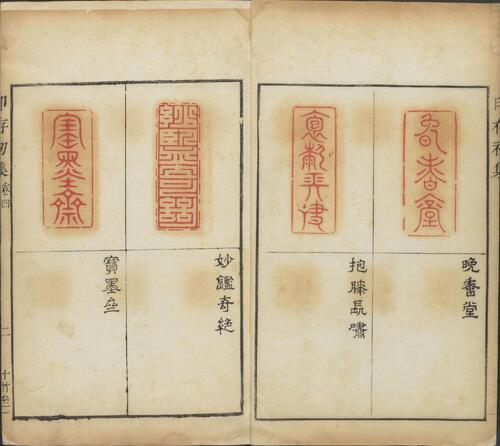 印存初集
晚香堂
抱膝長嘯
妙鑑奇絕
寶墨亝
印存初集 卷四
二
十竹亝